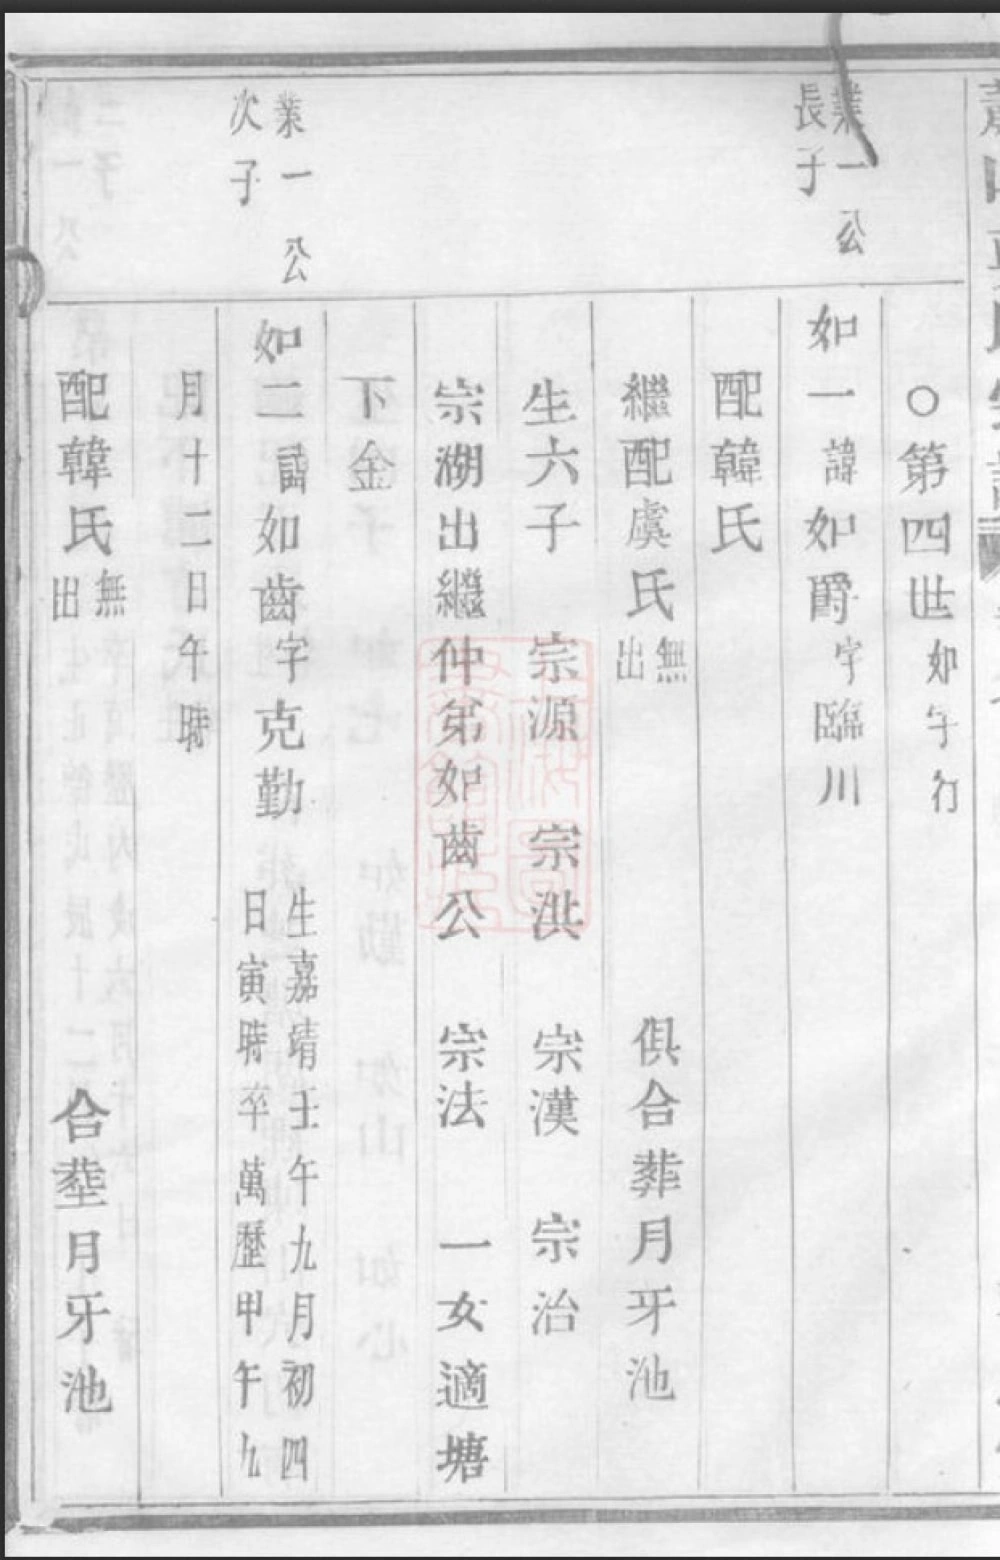 ○第四世如字行
業一公
長子
如一諱如爵字臨川
配韓氏
繼配虞氏無出 俱合葬月牙池
生六子 宗源 宗洪 宗漢 宗治
宗湖出繼仲弟如齒公 宗法 一女適塘
下金
業一公
次子
如二諱如齒字克勤 生嘉靖壬午九月初四
日寅時卒萬歷甲午九
月十二日午時
配韓氏無出 合塟月牙池